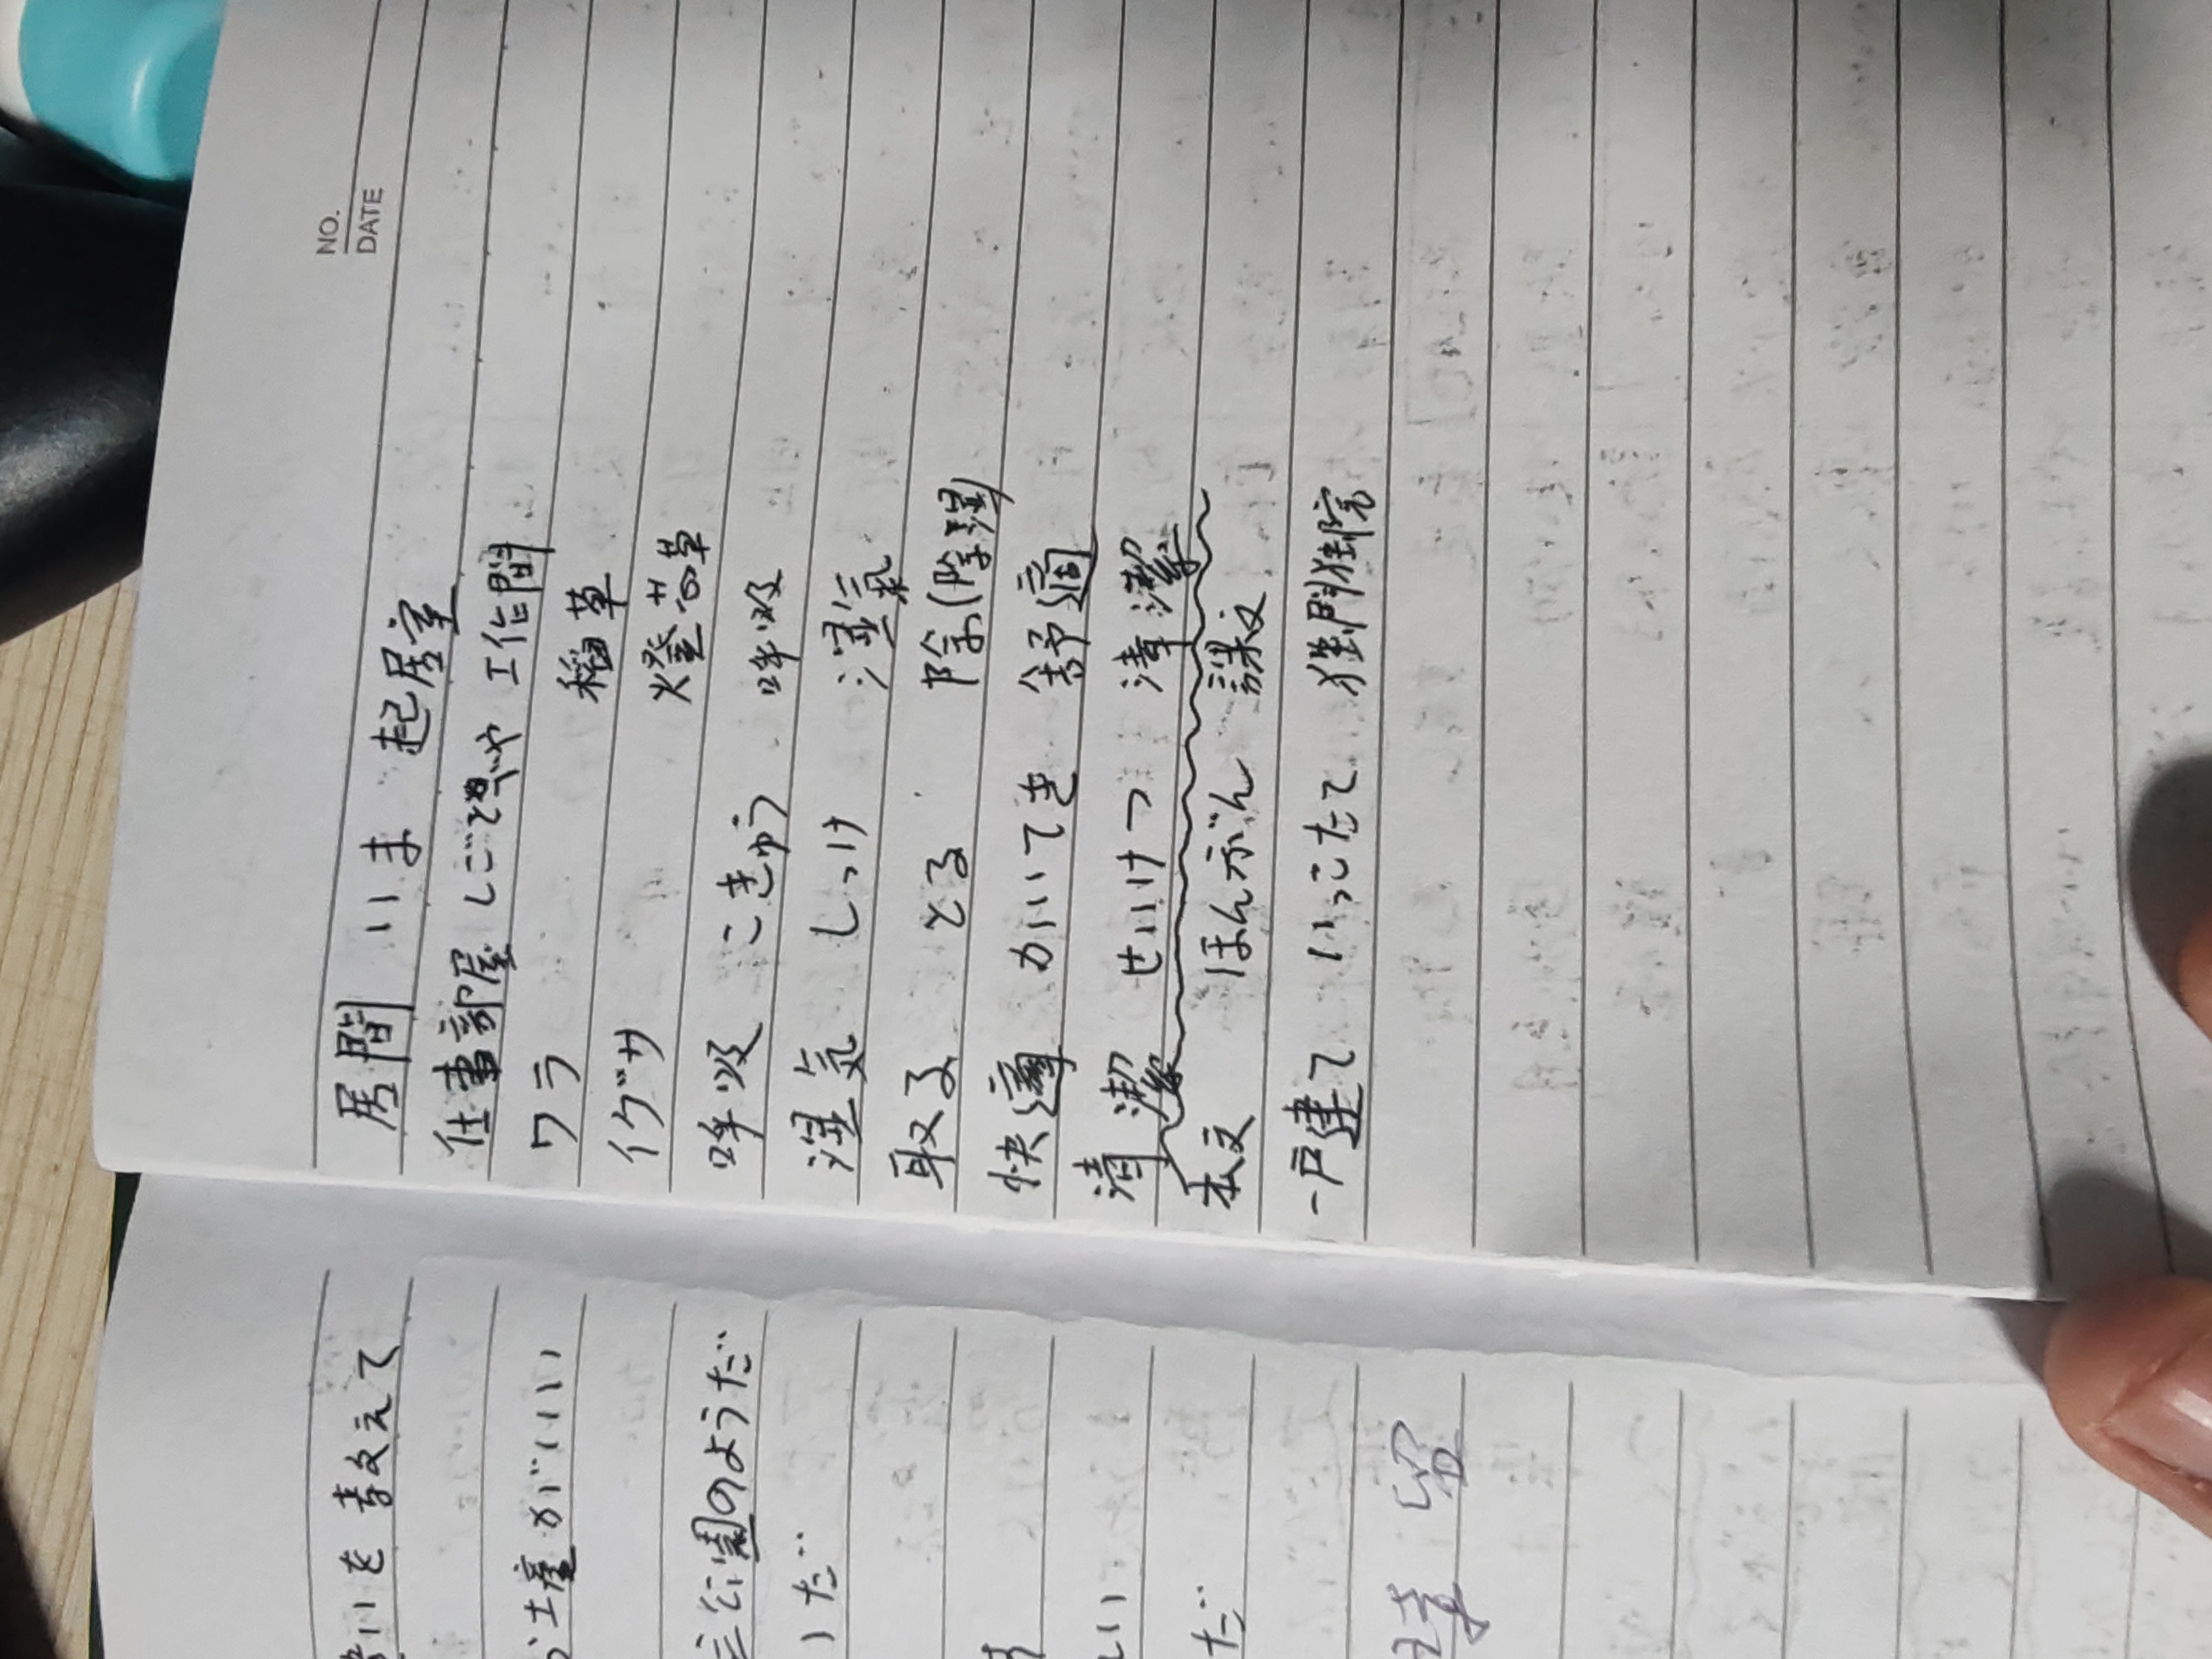 NO.
DATE
居間 いま 起居室
仕事部屋 しごとべや 工作間
ワラ 稲草
イグサ 燈芯草
呼吸 こきゅう 呼吸
湿気 しっけ 濕氣
取る とる 除(除濕)
快適 かいてき 舒適
清潔 せいけつ 清潔
本文 ほんぶん 課文
一戸建て いっこたて 獨門獨院
いを考えて
お土産がいい
公園のようだ…
いた…
しい
だ…